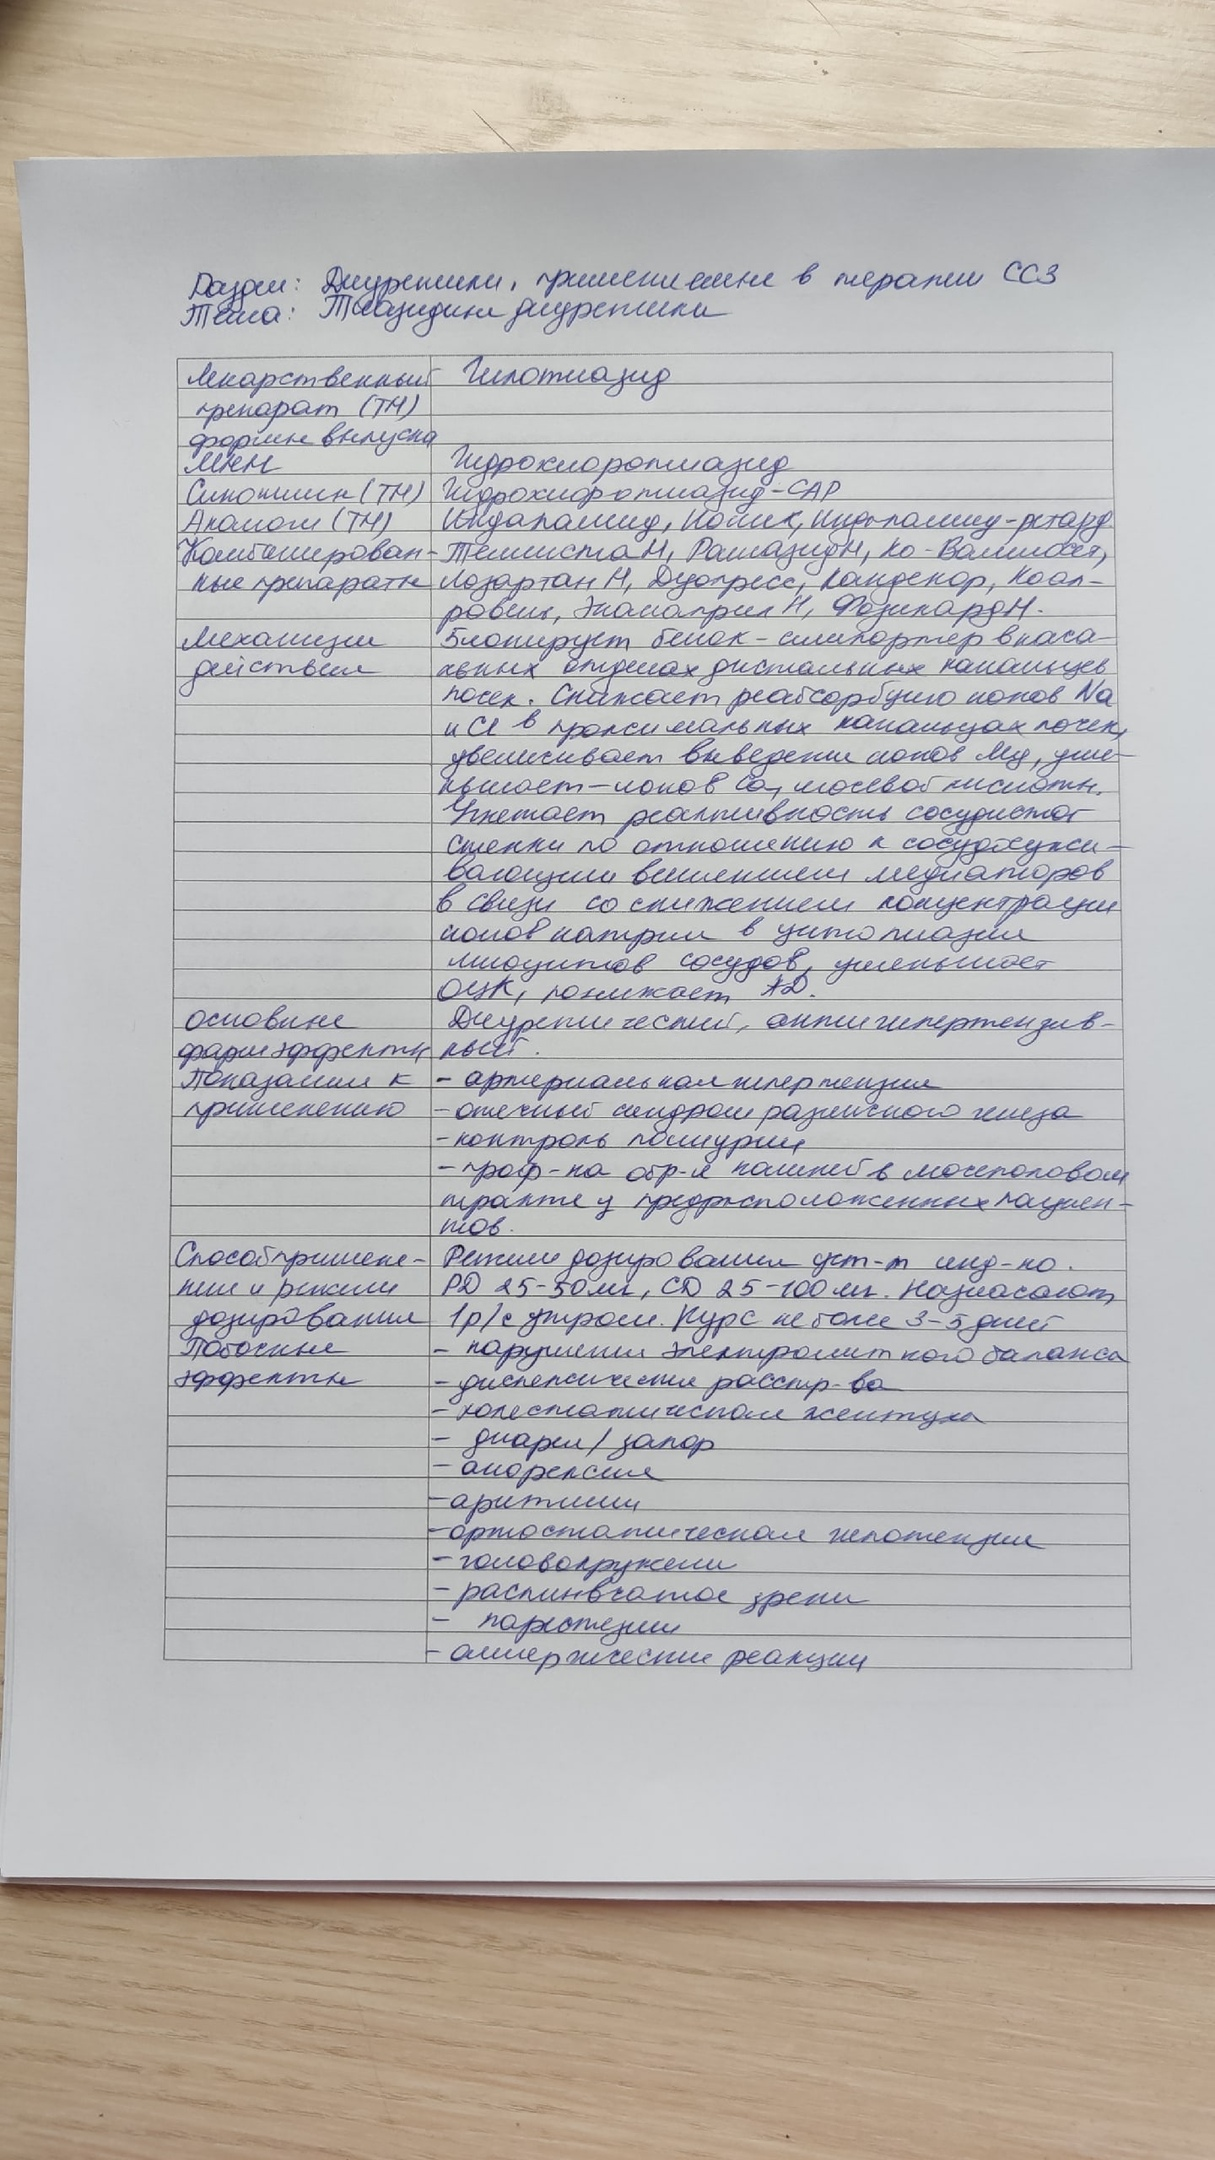 Раздел: Диуретики, применяемые в терапии ССЗ
Тема: Тиазидные диуретики
Лекарственный Гипотиазид
препарат (ТН)
формы выпуска
МНН Гидрохлоротиазид
Синонимы (ТН) Гидрохлоротиазид-САР
Аналоги (ТН) Индапамид, Ионик, Индапамид-ретард
Комбинирован- Телмиста Н, Рамазид Н, Ко-Вамлосет,
ные препараты Лозартан Н, Дуопресс, Кандекор, Коап-
ровель, Эналаприл Н, Фозикард Н.
Механизм Блокирует белок-симпортер в нача-
действия льных отделах дистальных канальцев
почек. Снижает реабсорбцию ионов Na
и Cl в проксимальных канальцах почек,
увеличивает выведение ионов Mg, уме-
ньшает - ионов Ca, мочевой кислоты.
Угнетает реактивность сосудистой
стенки по отношению к сосудосужи-
вающим влияниям медиаторов
в связи со снижением концентрации
ионов натрия в цитоплазме
миоцитов сосудов, уменьшает
ОЦК, понижает АД.
основные Диуретический, антигипертензив-
фарм эффекты ный.
Показания к - артериальная гипертензия
применению - отечный синдром различного генеза
- контроль полиурии
- проф-ка обр-я камней в мочеполовом
тракте у предрасположенных пациен-
тов.
Способ примене- Режим дозирования уст-т инд-но.
ния и режим РД 25-50 мг, СД 25-100 мг. Назначают
дозирования 1р/с утром. Курс не более 3-5 дней
Побочные - нарушения электролитного баланса
эффекты - диспепсические расстр-ва
- холестатическая желтуха
- диарея/запор
- анорексия
- аритмии
- ортостатическая гипотензия
- головокружени
- расплывчатое зрени
- парестезии
- аллергические реакции